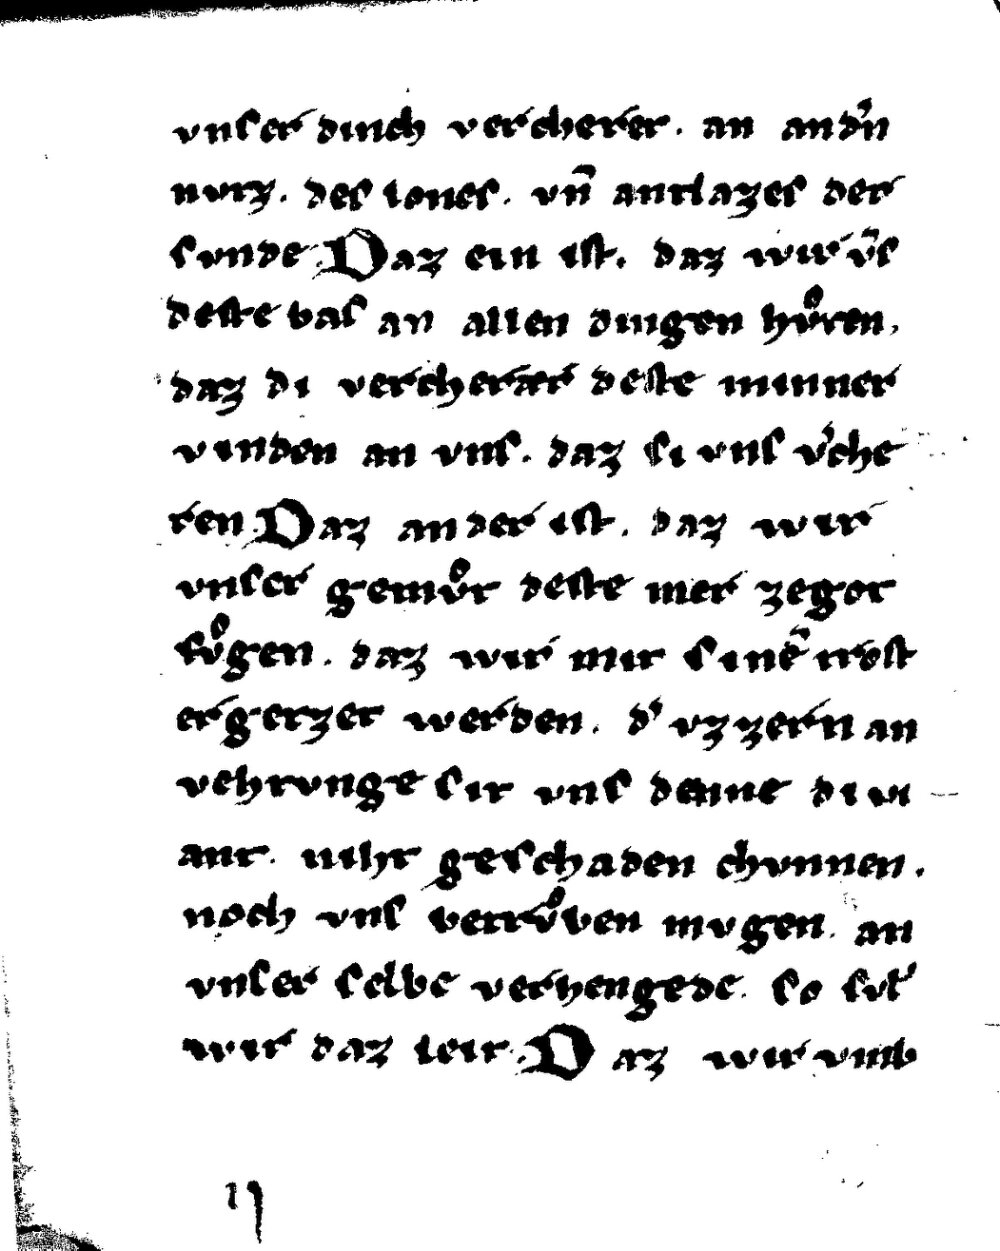 vnſer dinch vercherer. an and̾n
nvtz. deſ loneſ. vn̄ antlazeſ der
ſvnde. Daz ein iſt. daz wir v̄ſ
deſte baſ an allen dingen hvͦten.
daz di vercherær deſte minner
vinden an vnſ. daz ſi vnſ v̾che
ren. Daz ander iſt. daz wir
vnſer gemvͦt deſte mer zegot
fvͦgen. daz wir mit ſinē troſt
ergetzet werden. d̾ vzzern an
vehtvnge ſit vnſ denne di vi
ant. niht geſchaden chvnnen.
noch vnſ betrvͦben mvgen. an
vnſer ſelbe verhengede. ſo ſvl̾
wir daz leit. Daz wir vmb